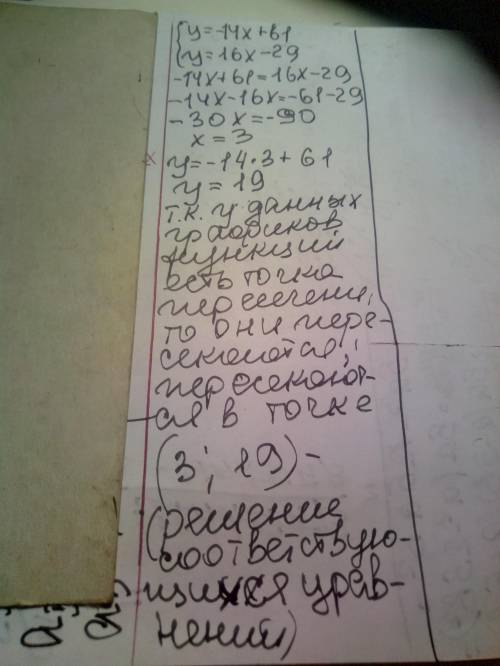 {y=-14x+61
{y=16x-29
-14x+61=16x-29
-14x-16x=-61-29
-30x=-90
x=3
y=-14·3+61
y=19
т.к. у данных
графиков
функций
есть точка
пересечени,
то они пере-
секаются,
пересекают-
ся в точке
(3; 19) -
(решение
соответствую-
щихся урав-
нений)